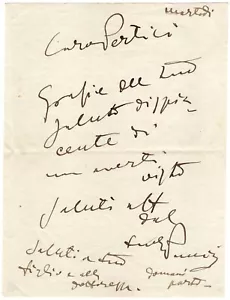 martedì
Caro Pertici
Grazie del tuo
saluto dispia
cente di
non averti
visto
Saluti aff
dal
Saluti a tuo
figlio e alla
dottoressa. domani
parto